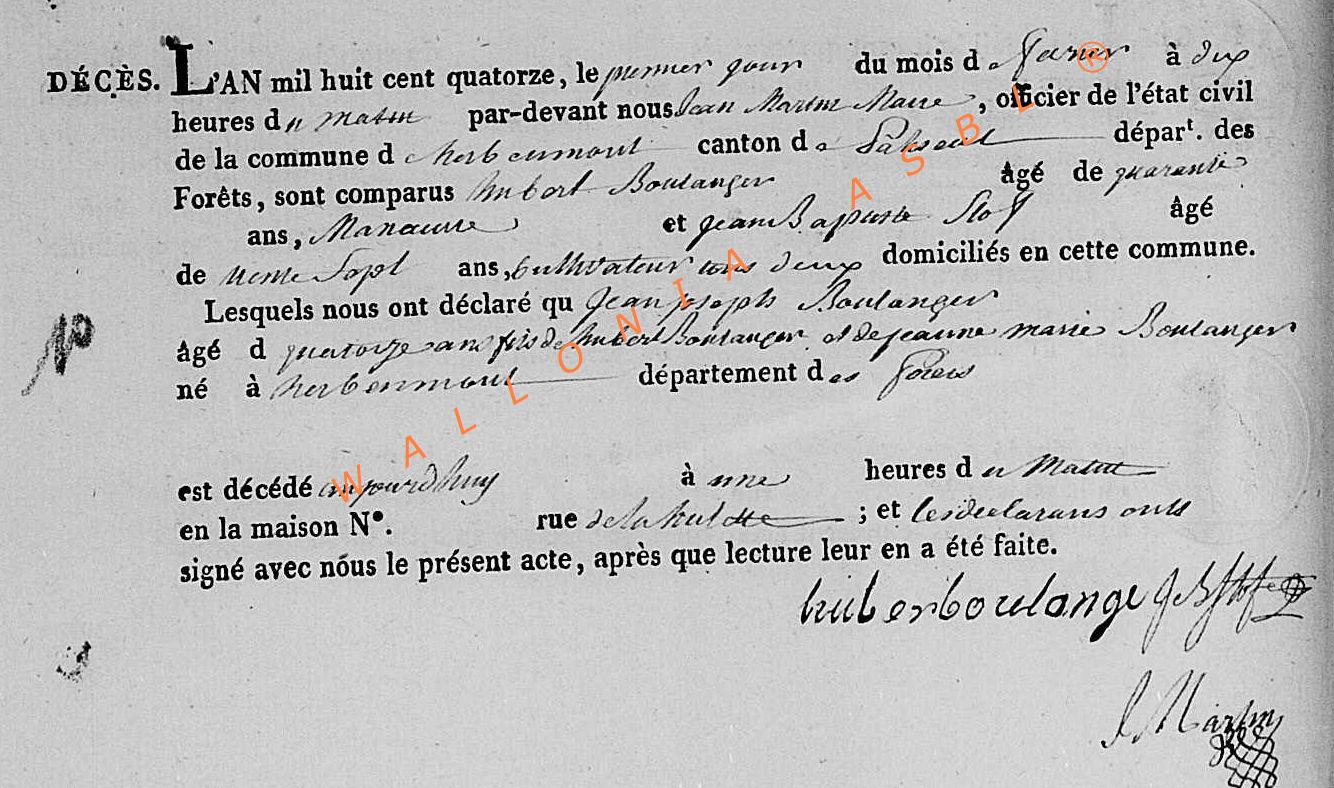 DÉCÈS. L'AN mil huit cent quatorze, le premier jour du mois d e Janvier à dix
heures d u matin par-devant nous Jean Martin Maire, officier de l'état civil
de la commune d e herbeumont canton d e Paliseul départ. des
Forêts, sont comparus hubert Boulanger âgé de quarante
ans, Manœuvre et jean Baptiste Stof âgé
de trente Sept ans, Cultivateur tous deux domiciliés en cette commune.
Lesquels nous ont déclaré qu Jean joseph Boulanger
âgé d quatorze ans fils de hubert Boulanger et de jeanne marie Boulanger
né à herbeumont département d es forets
est décédé aujourdhuy à une heures d u Matin
en la maison N°. rue de la ; et les declarans onts
signé avec nous le présent acte, après que lecture leur en a été faite.
huberboulange J B Stofe
J Martin
WALLONIA ASBL ®